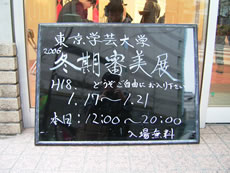 東京学芸大学
2006
冬期審美展
H18. どうぞご自由にお入り下さい
1.17〜1.21
本日:12:00〜20:00
入場無料